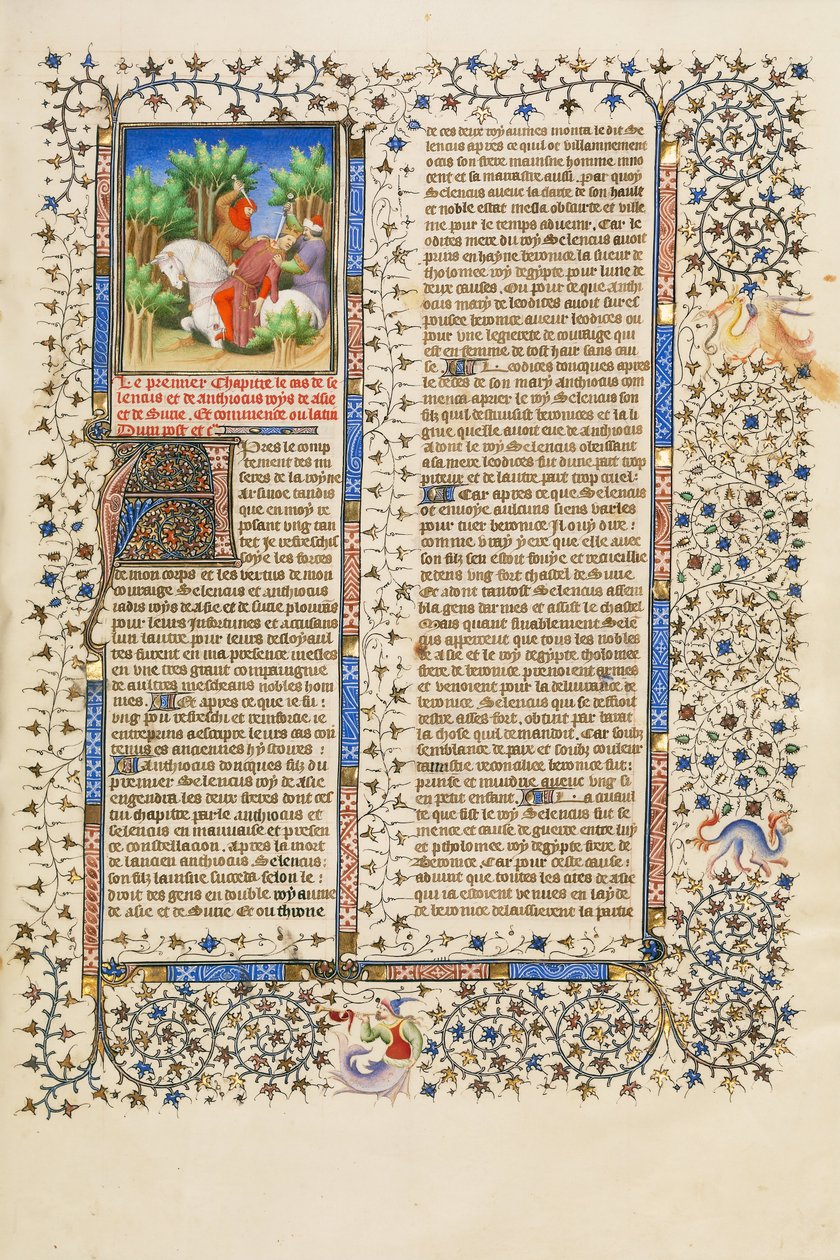 Le premier Chapitre le cas de se
lencus et de anthiocus roys de asie
et de Surie. Et commence ou latin
Dum post et cͣ
Apres le comp
tement des mi
seres de la royne
arsinoe tandis
que en moy re
posant ung tan
tet Je refreschis
soye les forces
de mon corps et les vertus de mon
couraige Selencus et anthiocus
iadis roys de asie et de surie plourans
pour leurs Infortunes et accusans
lun lautre pour leurs desloyaul
tes furent en ma presence mesles
en une tres grant compaignie
de aultres mescheans nobles hom
mes. Et apres ce que ie fu :
ung pou refreschi et reinforce ie
entrepris a escripre leurs cas con
tenus es anciennes hystoires :
Anthiocus doncques filz du
premier Selencus roy de asie
engendra les deux freres dont ces
tui chapitre parle anthiocus et
selencus en mauuaise et peruer
se constellacion. Apres la mort
de lancien anthiocus Selencus:
son filz laisne succeda selon le :
droit des gens en double royaume
de asie et de Surie Et ou throne
de ces deux royaumes monta le dit Se
lencus apres ce quil ot villainnement
occis son frere mainsne homme inno
cent et sa marastre aussi. par quoy
Selencus aueuc la clarte de son hault
et noble estat mesla obscurte et ville
me pour le temps aduenir. Car le
odites mere du roy Selencus auoit
prins en hayne beronice la sueur de
tholomee roy degypte pour lune de
deux causes. Ou pour ce que anthi
ocus mary de leodites auoit sures
pousee beronice aueuc leodices ou
pour une legierete de couraige qui
est en femme de tost hair sans cau
se. Leodices doncques apres
le deces de son mary anthiocus com
menca a prier le roy Selencus son
filz quil destruisist beronices et la li
gnie quelle auoit eue de anthiocus
adont le roy Selencus obeissant
a sa mere leodices fut dune part trop
piteux et de lautre part trop cruel:
Car apres ce que Selencus
ot enuoye aulcuns siens varles
pour tuer beronice Il ouy dire :
comme vray yere que elle auec
son filz sen estoit fouye et recueillie
dedens ung fort chastel de Surie
Et adont tantost Selencus assem
bla gens darmes et assist le chastel
Mais quant finablement Sele
cus apperceut que tous les nobles
de asie et le roy degypte tholomee
frere de beronice prenoient armes
et venoient pour la deliurance de
beronice. Selencus qui se deffioit
destre asses fort, obtint par barat
la chose quil demandoit. Car soubz
semblance de paix et soubz couleur
tainsie reconcilie beronice fut:
prinse et murdrie aueuc ung si
en petit enfant. La cruaul
te que fist le roy Selencus fut se
mence et cause de guerre entre luy
et ptholomee roy degypte frere de
Beronice. Car pour ceste cause :
aduint que toutes les cites de asie
qui ia estoient venues en layde
de beronice delaissierent la partie